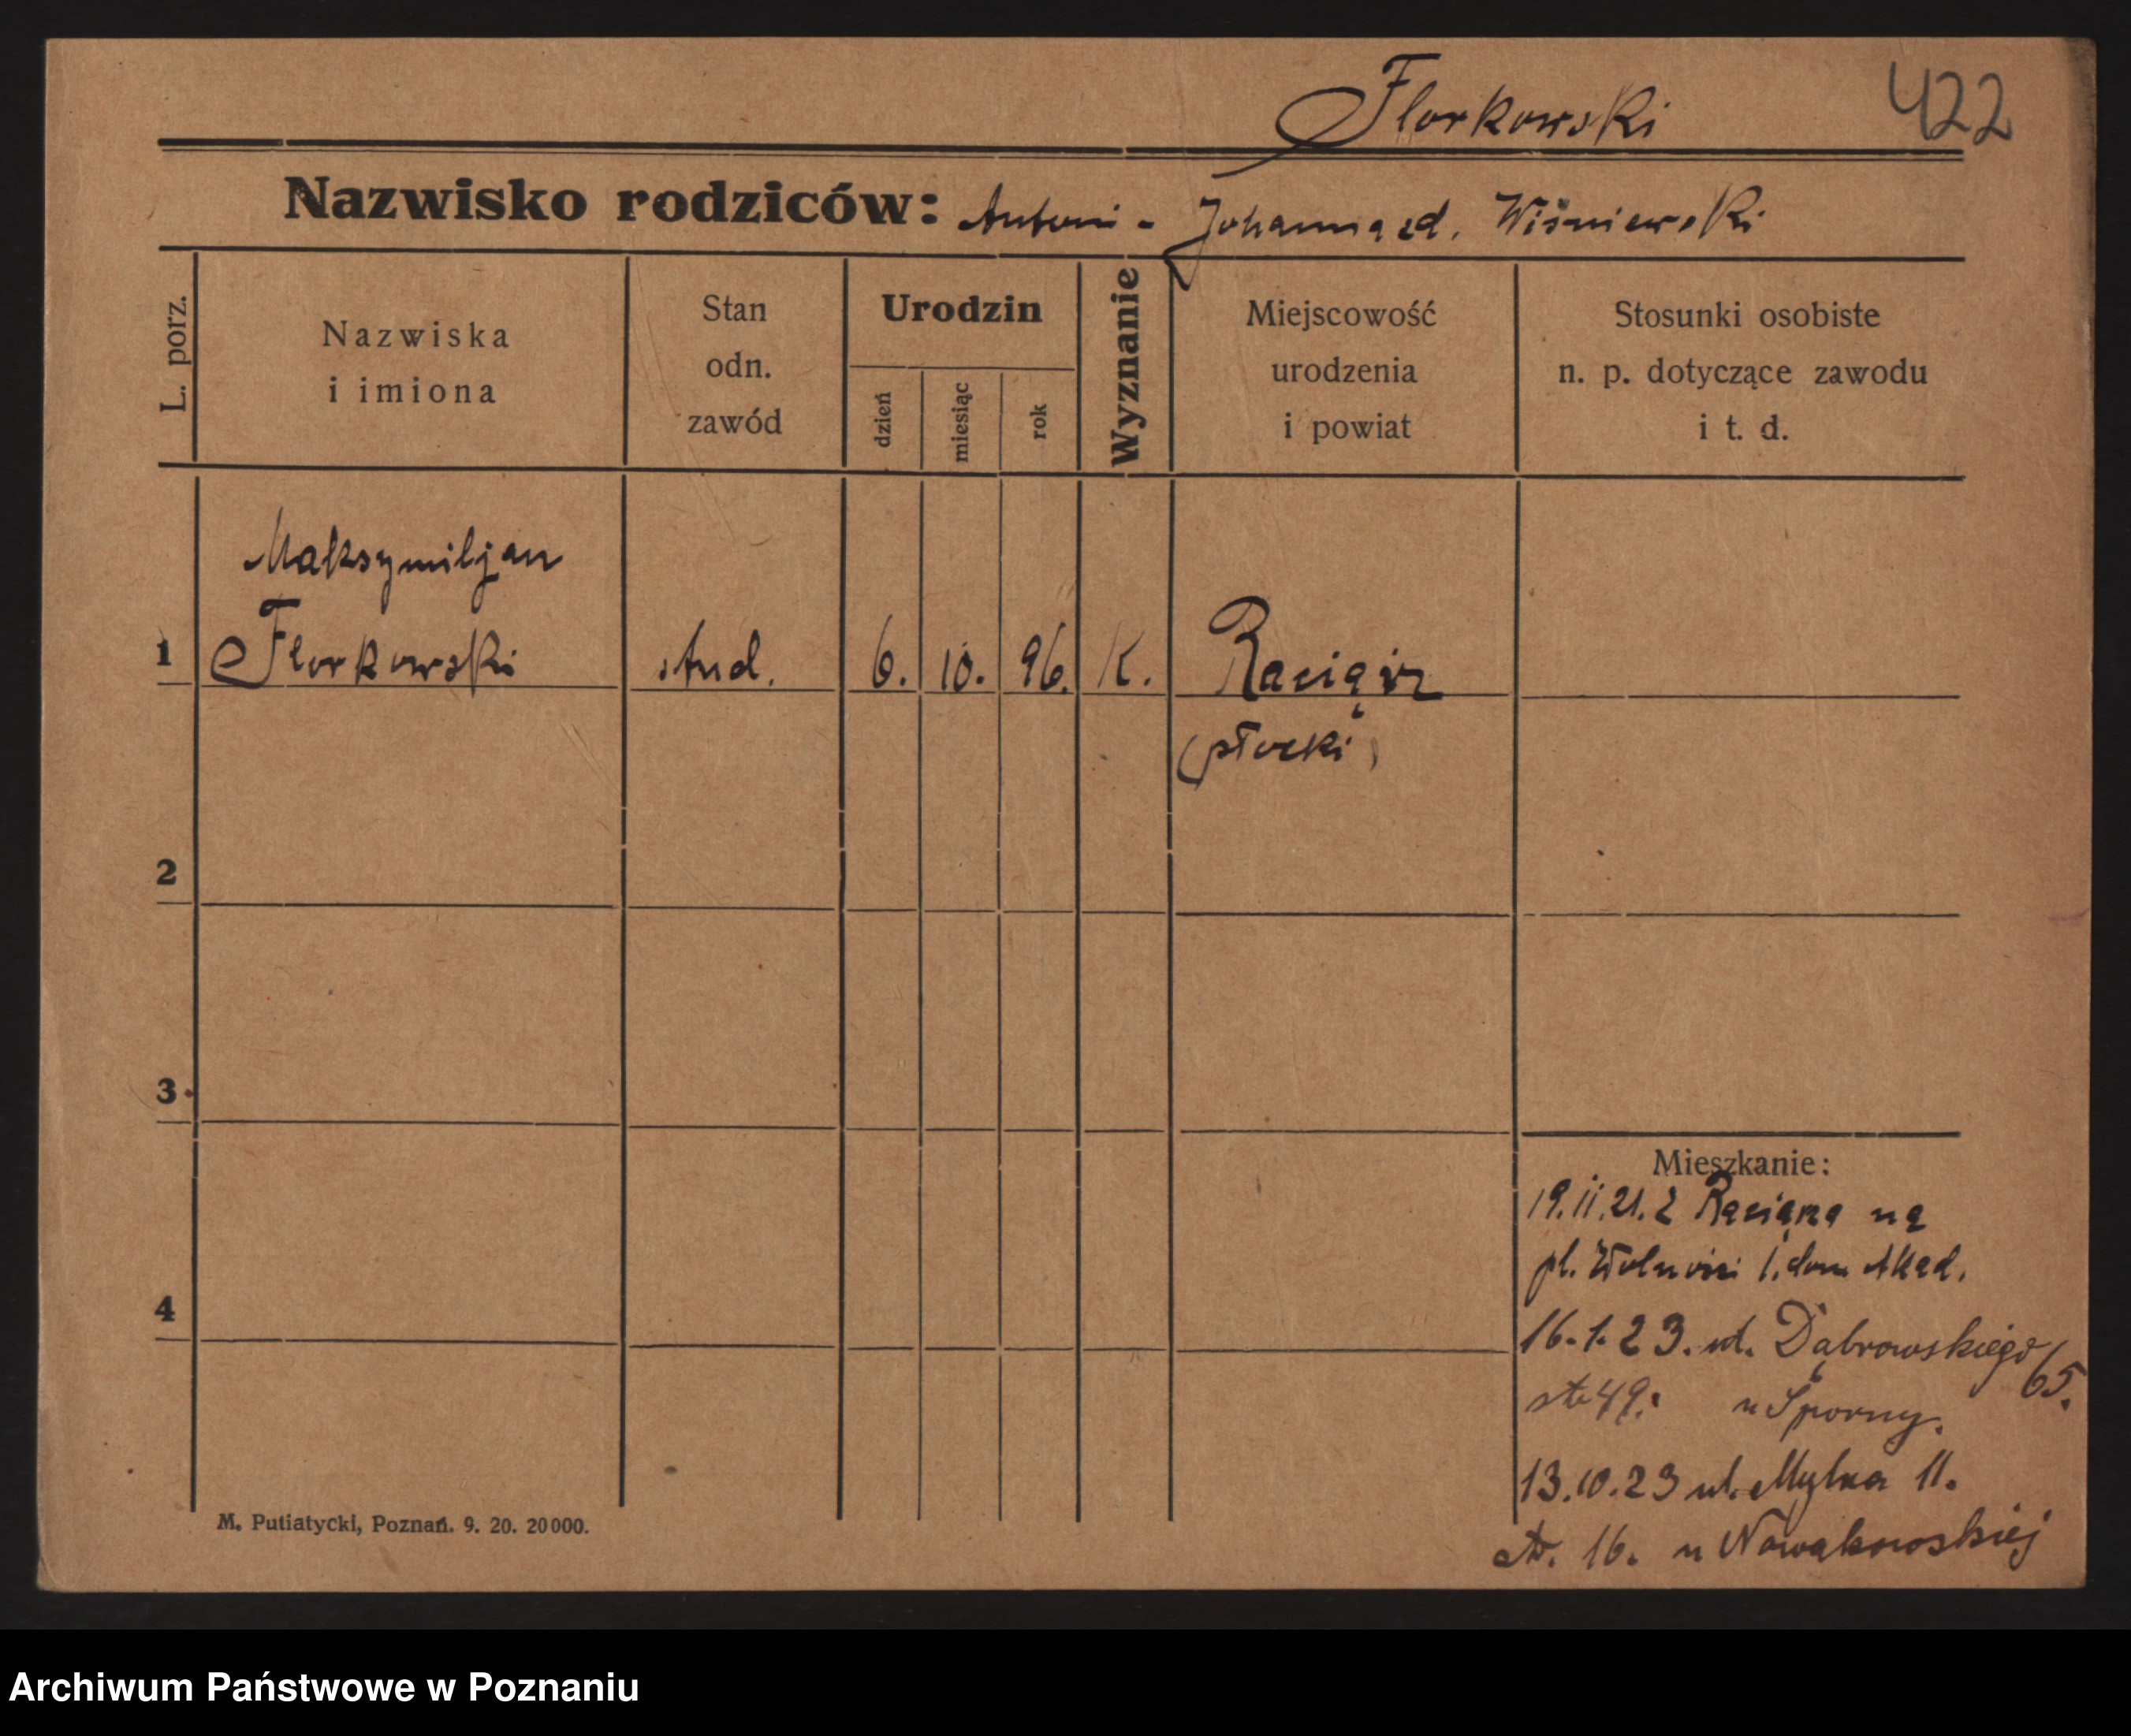 Florkowski 422
Nazwisko rodziców: Antoni - Johanna zd. Wiśniewski
L. porz.
Nazwiska
i imiona
Stan
odn.
zawód
Urodzin
dzień
miesiąc
rok
Wyznanie
Miejscowość
urodzenia
i powiat
Stosunki osobiste
n. p. dotyczące zawodu
i t. d.
Maksymiljan
1 Florkowski stud. 6. 10. 96. K. Raciąż
(płocki)
2
3
4
Mieszkanie:
19.11.21. z Raciąża na
pl. Wolności 1. dom Akad.
16.1.23. ul. Dąbrowskiego 65.
str 49. u Sporny.
13.10.23 ul. Mylna 11.
str. 16. u Nowakowskiej
M. Putiatycki, Poznań. 9. 20. 20000.
Archiwum Państwowe w Poznaniu